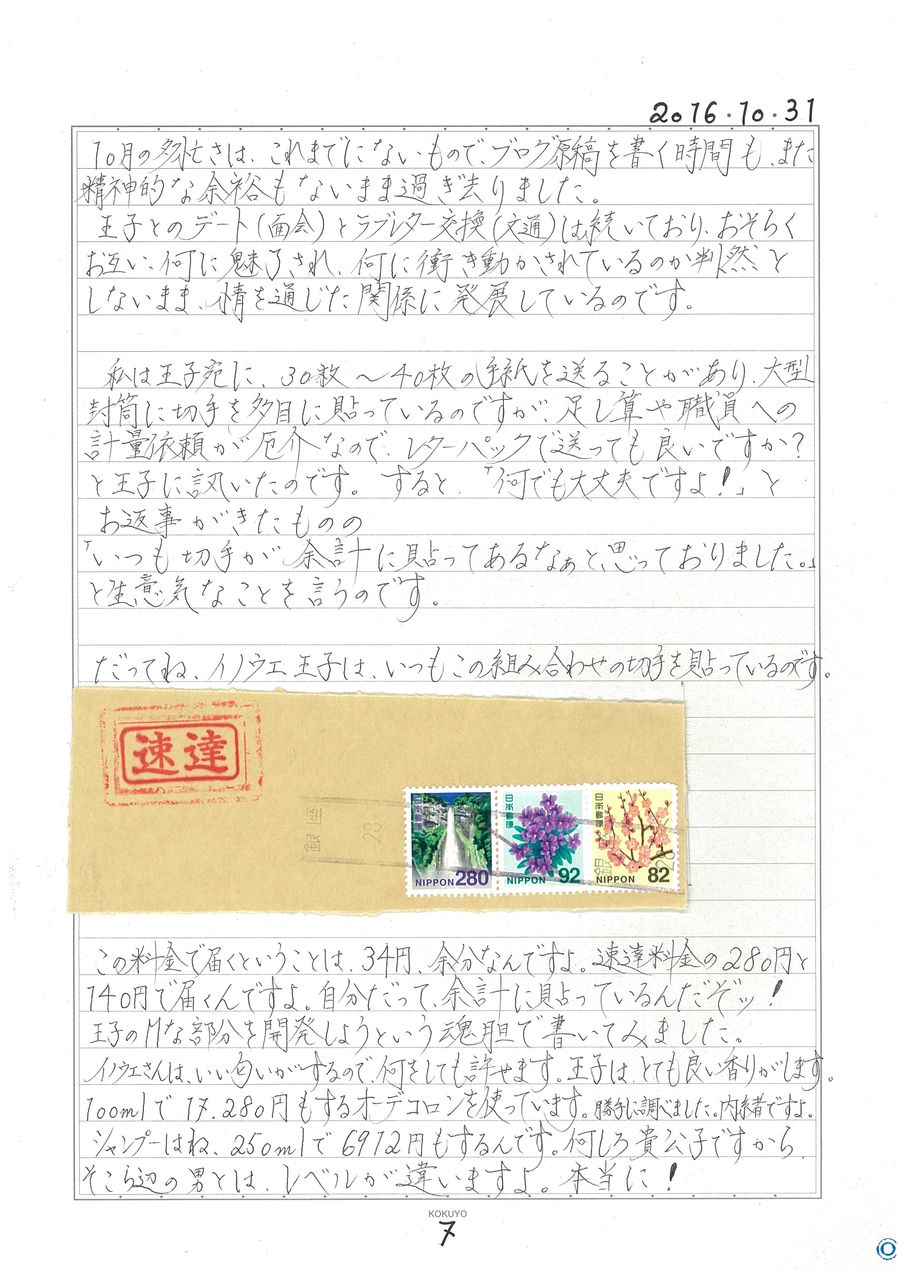 2016.10.31
10月の多忙さは、これまでにないもので、ブログ原稿を書く時間も、また
精神的な余裕もないまま過ぎ去りました。
王子とのデート(面会)とラブレター交換(交通)は続いており、おそらく
お互い、何に魅了され、何に衝き動かされているのか判然と
しないまま、情を通じた関係に発展しているのです。
私は王子宛に、30枚～40枚の手紙を送ることがあり、大型
封筒に切手を多目に貼っているのですが、足し算や職員への
計量依頼が厄介なので、レターパックで送っても良いですか?
と王子に訊いたのです。すると、「何でも大丈夫ですよ!」と
お返事がきたものの
「いつも切手が余計に貼ってあるなぁと、思っておりました。」
と生意気なことを言うのです。
だってね、イノウエ王子は、いつもこの組み合わせの切手を貼っているのです。
速達
銀座
28
日本郵便
NIPPON 280
日本郵便
NIPPON 92
日本郵便
NIPPON 82
この料金で届くということは、34円、余分なんですよ。速達料金の280円と
140円で届くんですよ。自分だって、余計に貼っているんだぞッ!
王子のMな部分を開発しようという魂胆で書いてみました。
イノウエさんは、いい匂いがするので何をしても許せます。王子は、とても良い香りがします。
100mlで17.280円もするオーデコロンを使っています。勝手に調べました。内緒ですよ。
シャンプーはね、250mlで6912円もするんです。何しろ貴公子ですから、
そこら辺の男とは、レベルが違いますよ。本当に!
KOKUYO
7